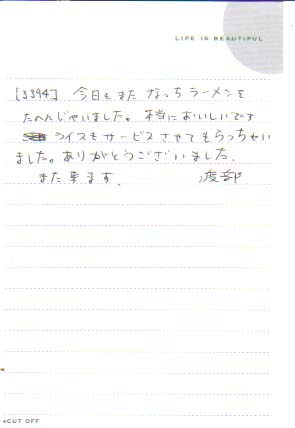 LIFE IS BEAUTIFUL
[3394] 今日もまた なっちラーメンを
たべんじゃいました。本当においしいです
ライスもサービスさせてもらっちゃい
ました。ありがとうございました.
また来ます. 渡部
CUT OFF